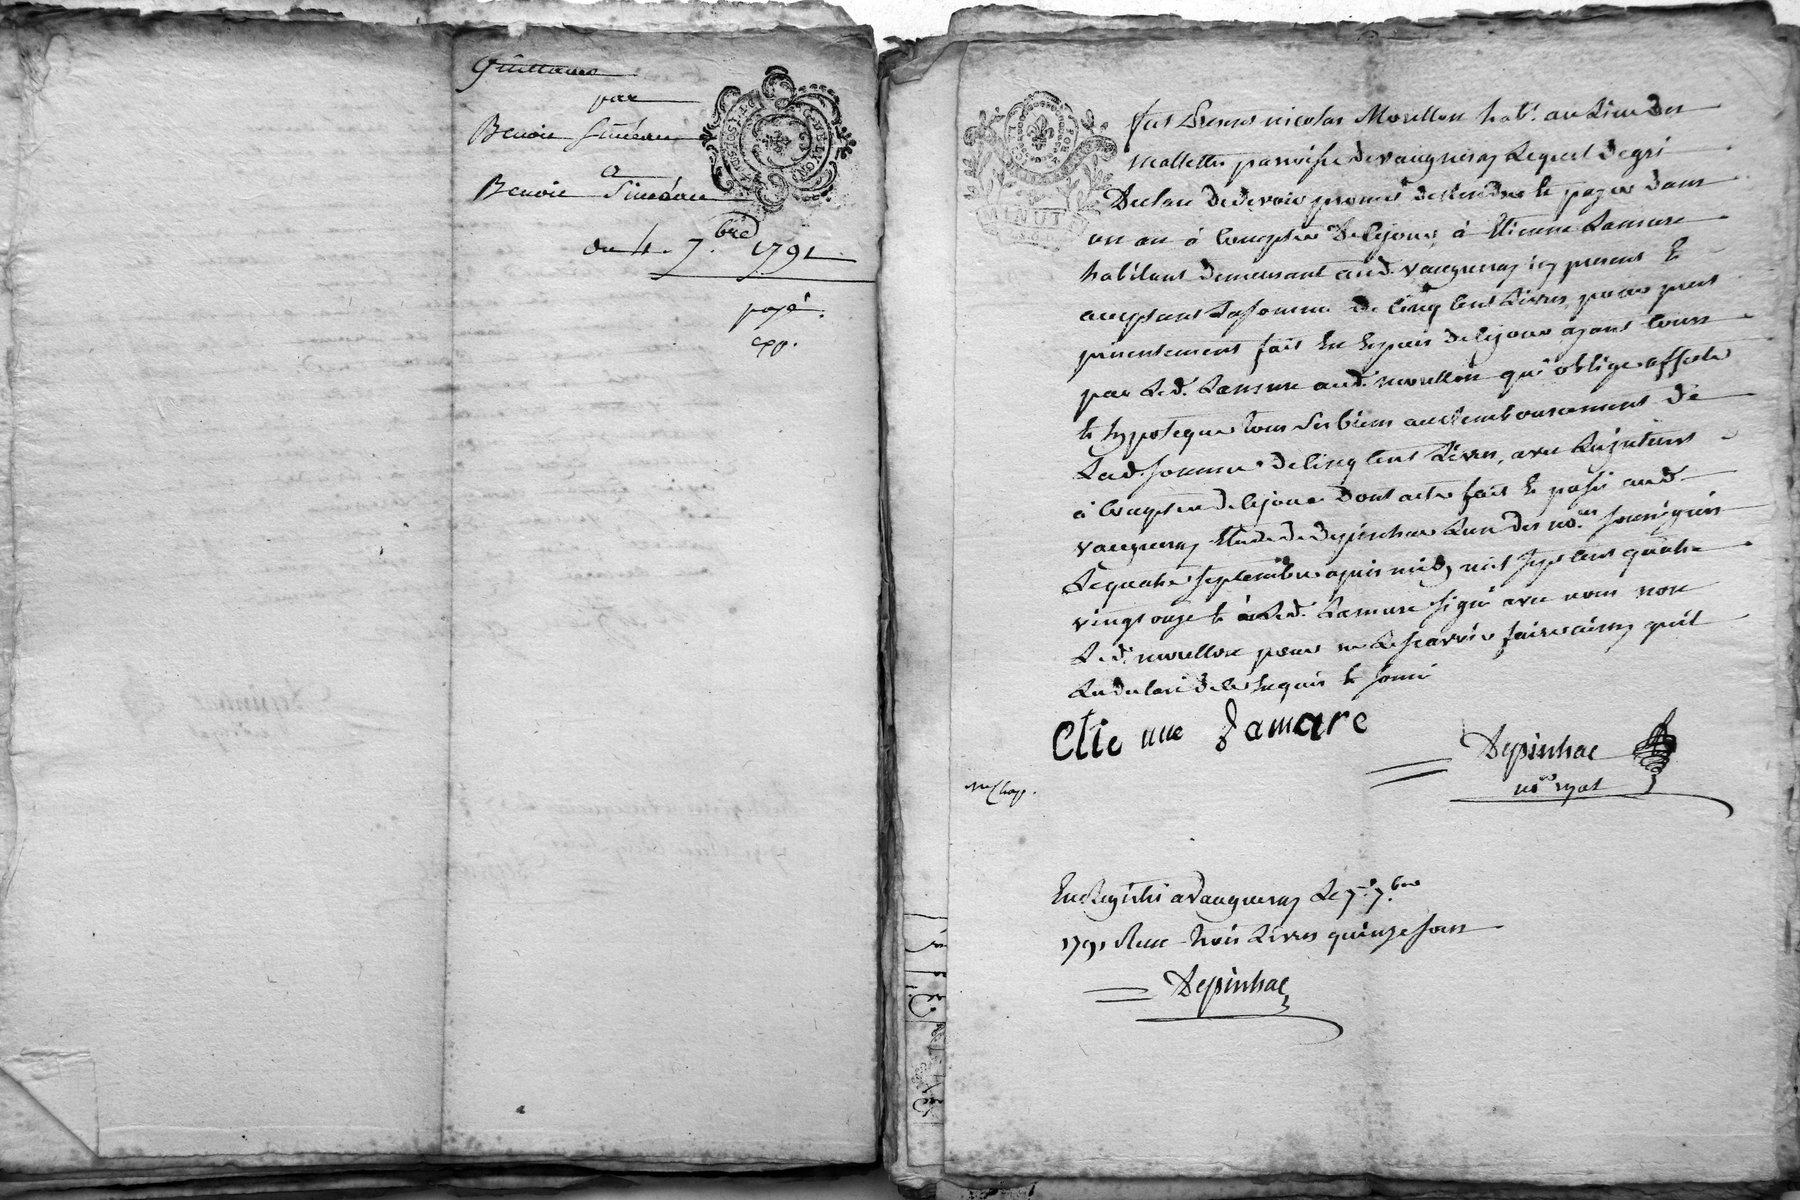 Quittance
par
Benoit Siméan
a
Benoit Siméan
du 4. 7.bre 1791
payé.
exp.
MINUTE
fut present nicolas Morellon hab.t au Lieu des
mallettes paroisse de vaugneray Lequel de gré
Declare devoir promet de rendre et payer dans
un an à Compter de Cejour, à Etienne Lamure
habitant demeurant aud. vaugneray icy present et
acceptant La somme de Cinq Cent Livres, pour prest
presentement fait En Especes de Cejour ayant Cours
par Led. Lamure aud. morellon qui oblige affecte
et hypoteque tous ses biens au Remboursement de
Lad. somme de Cinq Cent Livres, avec Les interets
à Compter de Cejour Dont acte fait et passé aud.
vaugneray Etude de Depinhac L'un des no.res soussignés
Le quatre septembre apres midy mil sept cent quatre
vingt onze et à Led. Lamure signé avec nous non
Led. morellon pour ne Le sçavoir faire ainsy qu'il
La declaré de ce Enquis et sommé
Etie nne Lamure
Depinhac
no.re royal
Enregistré a Vaugneray Le 7. 7.bre
1791 Recu trois Livres quinze sous
Depinhac